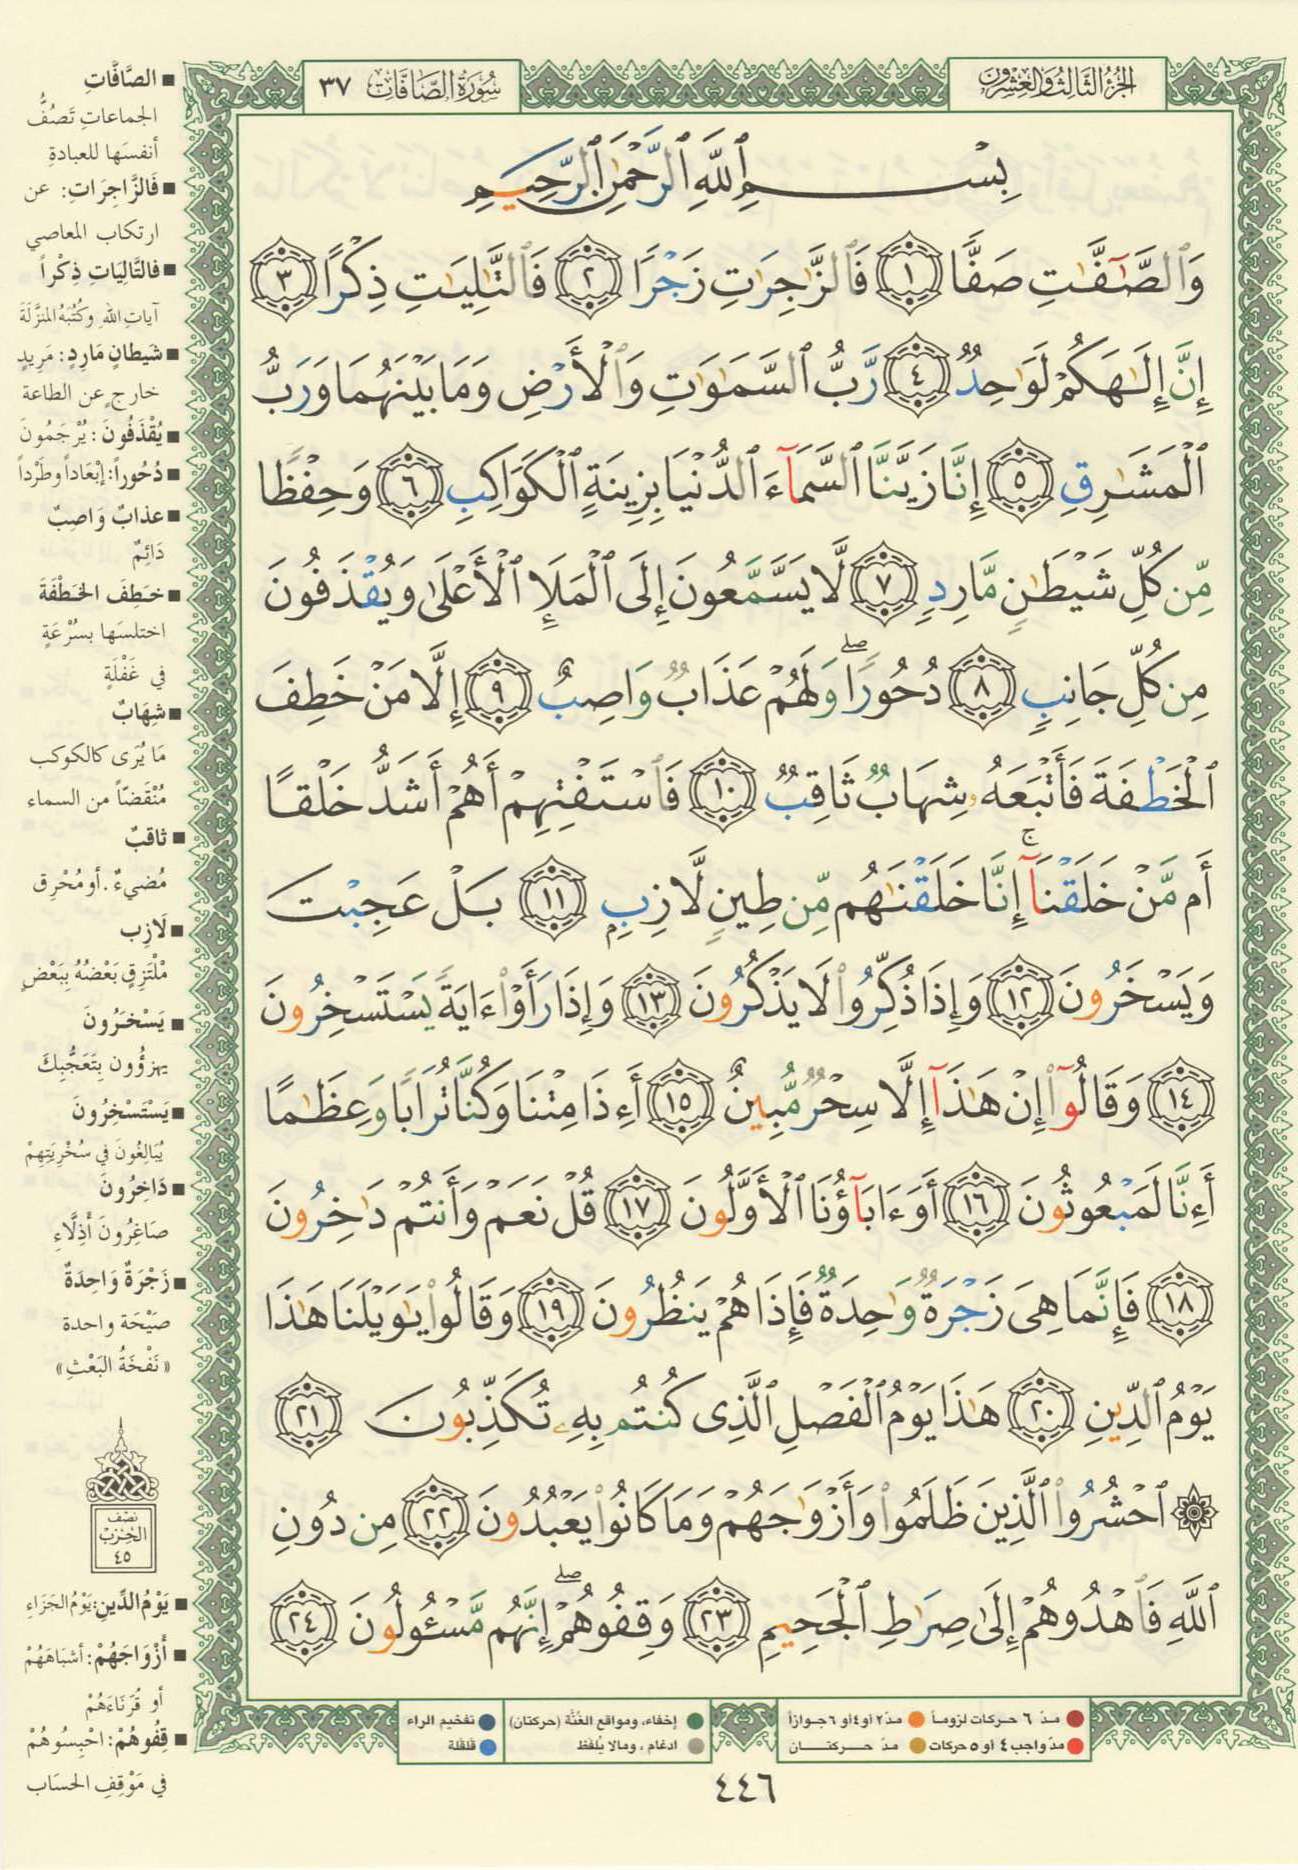 الجزء الثالث والعشرون
سورة الصافات ٣٧
بِسْمِ ٱللَّهِ ٱلرَّحْمَٰنِ ٱلرَّحِيمِ
وَٱلصَّٰٓفَّٰتِ صَفًّا ١ فَٱلزَّٰجِرَٰتِ زَجْرًا ٢ فَٱلتَّٰلِيَٰتِ ذِكْرًا ٣
إِنَّ إِلَٰهَكُمْ لَوَٰحِدٌ ٤ رَّبُّ ٱلسَّمَٰوَٰتِ وَٱلْأَرْضِ وَمَا بَيْنَهُمَا وَرَبُّ
ٱلْمَشَٰرِقِ ٥ إِنَّا زَيَّنَّا ٱلسَّمَآءَ ٱلدُّنْيَا بِزِينَةٍ ٱلْكَوَاكِبِ ٦ وَحِفْظًا
مِّن كُلِّ شَيْطَٰنٍ مَّارِدٍ ٧ لَّا يَسَّمَّعُونَ إِلَى ٱلْمَلَإِ ٱلْأَعْلَىٰ وَيُقْذَفُونَ
مِن كُلِّ جَانِبٍ ٨ دُحُورًا ۖ وَلَهُمْ عَذَابٌ وَاصِبٌ ٩ إِلَّا مَنْ خَطِفَ
ٱلْخَطْفَةَ فَأَتْبَعَهُۥ شِهَابٌ ثَاقِبٌ ١٠ فَٱسْتَفْتِهِمْ أَهُمْ أَشَدُّ خَلْقًا
أَم مَّنْ خَلَقْنَآ ۚ إِنَّا خَلَقْنَٰهُم مِّن طِينٍ لَّازِبٍۭ ١١ بَلْ عَجِبْتَ
وَيَسْخَرُونَ ١٢ وَإِذَا ذُكِّرُوا۟ لَا يَذْكُرُونَ ١٣ وَإِذَا رَأَوْا۟ ءَايَةً يَسْتَسْخِرُونَ
١٤ وَقَالُوٓا۟ إِنْ هَٰذَآ إِلَّا سِحْرٌ مُّبِينٌ ١٥ أَءِذَا مِتْنَا وَكُنَّا تُرَابًا وَعِظَٰمًا
أَءِنَّا لَمَبْعُوثُونَ ١٦ أَوَءَابَآؤُنَا ٱلْأَوَّلُونَ ١٧ قُلْ نَعَمْ وَأَنتُمْ دَٰخِرُونَ
١٨ فَإِنَّمَا هِىَ زَجْرَةٌ وَٰحِدَةٌ فَإِذَا هُمْ يَنظُرُونَ ١٩ وَقَالُوا۟ يَٰوَيْلَنَا هَٰذَا
يَوْمُ ٱلدِّينِ ٢٠ هَٰذَا يَوْمُ ٱلْفَصْلِ ٱلَّذِى كُنتُم بِهِۦ تُكَذِّبُونَ ٢١
۞ ٱحْشُرُوا۟ ٱلَّذِينَ ظَلَمُوا۟ وَأَزْوَٰجَهُمْ وَمَا كَانُوا۟ يَعْبُدُونَ ٢٢ مِن دُونِ
ٱللَّهِ فَٱهْدُوهُمْ إِلَىٰ صِرَٰطِ ٱلْجَحِيمِ ٢٣ وَقِفُوهُمْ ۖ إِنَّهُم مَّسْـُٔولُونَ ٢٤
■ الصَّافَّاتِ
الجماعاتِ تَصُفُّ
أنفسَها للعبادةِ
■ فَالزَّاجِرَاتِ: عن
ارتكاب المعاصي
■ فالتَّالِيَاتِ ذِكْراً
آياتِ الله وكُتُبَهُ المنزَّلَةَ
■ شَيطانٍ مَارِدٍ: مَرِيدٍ
خارجٍ عن الطاعة
■ يُقْذَفُونَ: يُرْجَمُونَ
■ دُحُوراً: إبْعَاداً وطَرْداً
■ عذابٌ وَاصِبٌ
دَائِمٌ
■ خَطِفَ الخَطْفَةَ
اختلسَها بسُرْعَةٍ
في غَفْلَةٍ
■ شِهَابٌ
مَا يُرَى كالكوكب
مُنْقَضّاً من السماء
■ ثاقبٌ
مُضيءٌ. أو مُحْرِق
■ لَازِب
مُلْتَزِقٍ بَعْضُهُ بِبَعْضٍ
■ يَسْخَرُونَ
يهزؤُون بِتَعَجُّبِكَ
■ يَسْتَسْخِرُونَ
يُبَالِغُونَ في سُخْرِيَتِهِمْ
■ دَاخِرُونَ
صَاغِرُونَ أَذِلَّاءِ
■ زَجْرَةٌ وَاحِدَةٌ
صَيْحَة واحدة
«نَفْخَةُ البَعْثِ»
نصف
الحزب
٤٥
■ يَوْمُ الدِّينِ: يَوْمُ الجَزَاءِ
■ أَزْوَاجَهُمْ: أشبَاهَهُمْ
أو قُرَنَاءَهُمْ
■ قِفُوهُمْ: احْبِسُوهُمْ
في مَوْقِفِ الحسَاب
مدّ ٦ حركات لزوماً
مدّ ٢ أو ٤ أو ٦ جوازاً
مدّ واجب ٤ أو ٥ حركات
مدّ حركتان
إخفاء، ومواقع الغُنَّة (حركتان)
ادغام، ومالا يُلفظ
تفخيم الراء
قلقلة
٤٤٦